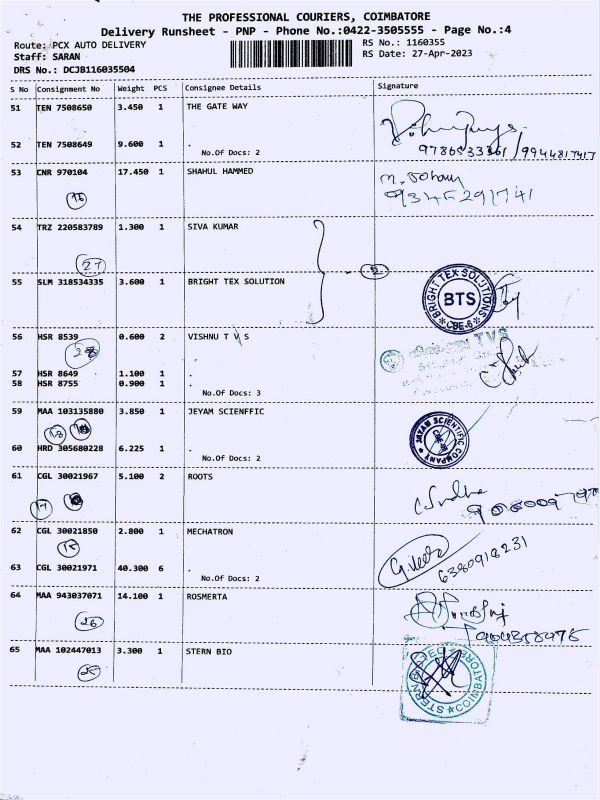 THE PROFESSIONAL COURIERS, COIMBATORE
Delivery Runsheet - PNP - Phone No.:0422-3505555 - Page No.:4
Route: PCX AUTO DELIVERY
RS No.: 1160355
Staff: SARAN
RS Date: 27-Apr-2023
DRS No.: DCJB116035504
S No Consignment No Weight PCS Consignee Details Signature
51 TEN 7508650 3.450 1 THE GATE WAY
52 TEN 7508649 9.600 1 .
No.Of Docs: 2
53 CNR 970104 17.450 1 SHAHUL HAMMED
16
54 TRZ 220583789 1.300 1 SIVA KUMAR
27
55 SLM 318534335 3.600 1 BRIGHT TEX SOLUTION
BRIGHT TEX SOLUTIONS
BTS
CBE-6
56 HSR 8539 0.600 2 VISHNU T V S
28
57 HSR 8649 1.100 1 .
58 HSR 8755 0.900 1 .
No.Of Docs: 3
59 MAA 103135880 3.850 1 JEYAM SCIENFFIC
18
JAYAM SCIENTIFIC COMPANY
60 HRD 305680228 6.225 1 .
No.Of Docs: 2
61 CGL 30021967 5.100 2 ROOTS
17
62 CGL 30021850 2.800 1 MECHATRON
15
6380918231
63 CGL 30021971 40.300 6 .
No.Of Docs: 2
64 MAA 943037071 14.100 1 ROSMERTA
26
65 MAA 102447013 3.300 1 STERN BIO
25
COIMBATORE